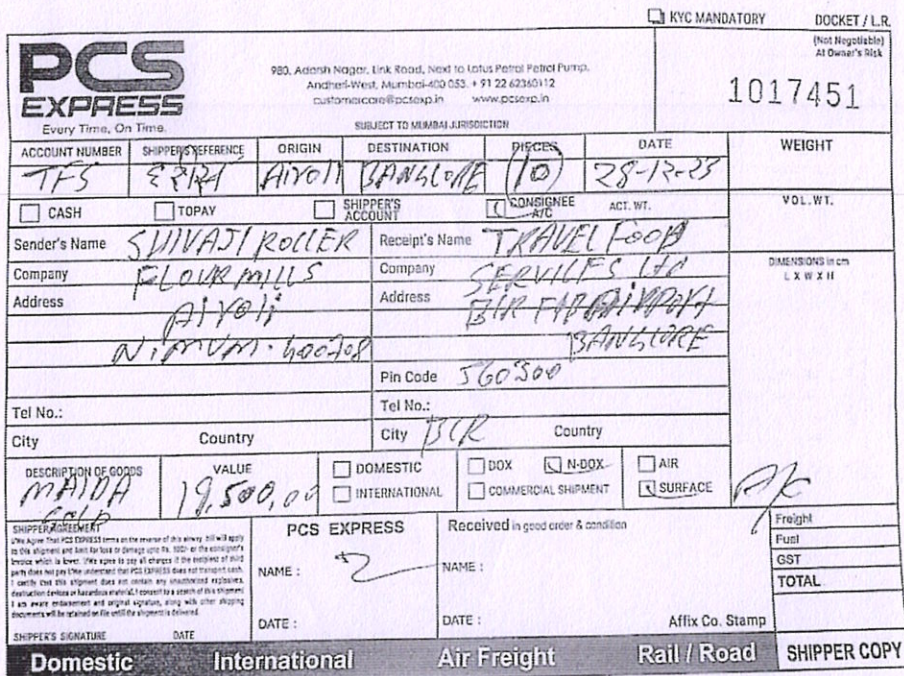 KYC MANDATORY
DOCKET / L.R.
(Not Negotiable)
At Owner's Risk
1017451
PCS
EXPRESS
Every Time, On Time.
980, Adarsh Nagar, Link Road, Next to Lotus Petrol Petrol Pump,
Andheri-West, Mumbai-400 053. + 91 22 62360112
customercare@pcsexp.in www.pcsexp.in
SUBJECT TO MUMBAI JURISDICTION
ACCOUNT NUMBER SHIPPER'S REFERENCE ORIGIN DESTINATION PIECES DATE WEIGHT
TFS Airoli BANGLORE 10 28-12-23
CASH TOPAY SHIPPER'S ACCOUNT CONSIGNEE A/C ACT. WT. VOL.WT.
Sender's Name SHIVAJI ROLLER Receipt's Name TRAVEL FOOD
Company FLOUR MILLS Company SERVICES Ltd
DIMENSIONS in cm
L X W X H
Address Airoli Address AIRPORT
N.MUM. 400708 BANGLORE
Pin Code 560300
Tel No.: Tel No.:
City Country City Country
DESCRIPTION OF GOODS VALUE DOMESTIC DOX N-DOX AIR
MAIDA 19,500,00 INTERNATIONAL COMMERCIAL SHIPMENT SURFACE A/C
SHIPPER AGREEMENT
I/We Agree That PCS EXPRESS terms on the reverse of this airway bill will apply
to this shipment and limit for loss or damage upto Rs. 100/- or the consignor's
invoice which is lower. I/We agree to pay all charges if the recipient of third
party does not pay I/We understand that PCS EXPRESS does not transport cash.
I certify that this shipment does not contain any unauthorized explosives,
destruction devices or hazardous material. I consent to a search of this shipment
I am aware endorsement and original signature, along with other shipping
documents will be retained on file until the shipment is delivered.
SHIPPER'S SIGNATURE DATE
PCS EXPRESS
NAME :
DATE :
Received in good order & condition
NAME :
DATE :
Affix Co. Stamp
Freight
Fuel
GST
TOTAL
Domestic International Air Freight Rail / Road SHIPPER COPY